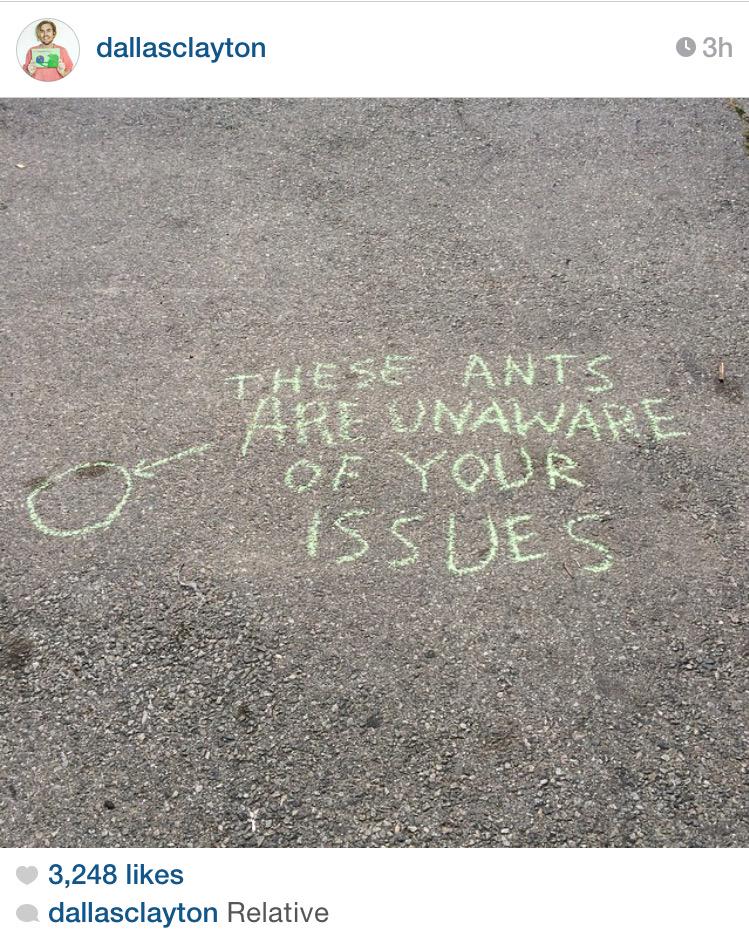 dallasclayton
3h
THESE ANTS
ARE UNAWARE
OF YOUR
ISSUES
3,248 likes
dallasclayton Relative